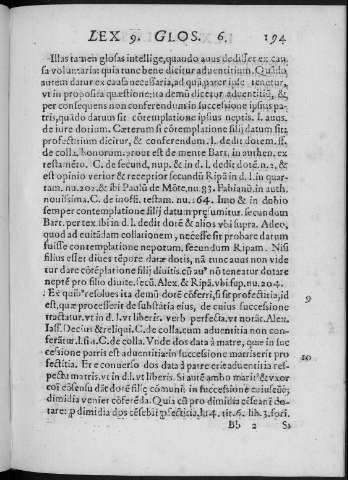 LEX 9. GLOS. 6. 194
Illas tamen glosas intellige, quando auus dedisset ex cau
sa voluntaria: quia tunc bene dicitur aduentitium. Quãdo
autem datur ex causa necessaria, ad quã pater ipse tenetur,
vt in proposita quæstione: ita demũ dicetur aduentitiũ, &
per consequens non conferendum in successione ipsius pa-
tris, quãdo datum sit cõtemplatione ipsius neptis. l. auus.
de iure dotium. Cæterum si cõtemplatione filij datum sit:
profectitium dicitur, & conferendum. l. dedit dotem. ff.
de colla. honorum. prout est de mente Bart. in authen. ex
testamẽto. C. de secund. nup. & in d. l. dedit dotẽ. n. 2. &
est opinio verior & receptior secundũ Ripã in d. l. in quar-
tam. nu. 202. & ibi Paulũ de Mõte, nu. 83. Fabianũ. in auth.
nouissima. C. de inoffi. testam. nu. 164. Imo & in dubio
semper contemplatione filij datum præsumitur. secundum
Bart. per tex. ibi in d. l. dedit dotẽ & alios vbi supra. Adeo,
quod ad euitãdam collationem, necesse sit probare datum
fuisse contemplatione neporum. secundum Ripam. Nisi
filius esset diues tẽpore datæ dotis, nã tunc auus non vide
tur dare cõtẽplatione filij diuitis. cũ au⁹ nũ teneatur dotare
neptẽ pro filio diuite. secũ. Alex. & Ripã. vbi sup. nu. 204.
Ex quib⁹ resolues ita demũ dotẽ cõferri, si sit profectitia, id 9
est, quæ processerit de substãtia eius, de cuius successione
tractatur. vt in d. l. vt liberis. verb. perfecta. vt notãt. Alex.
Iass. Decius & reliqui. C. de colla. cum aduentitia non con-
ferãtur. l. fi. C. de colla. Vnde dos data à matre, quæ in suc
cessione patris est aduentitia: in successione matris erit pro
fectitia. Et e conuerso dos data à patre erit aduentitia res- 10
pectu matris. vt in d. l. vt liberis. Si autẽ ambo marit⁹ & vxor
cõi cõsensu dãt dotẽ filiæ cõmuni: in successione cuiuscũq;
dimidia venier cõferẽda. Quia cũ pro dimidia cẽseant̃ do-
tare: ꝓ dimidia dos cẽsebit̃ ꝓfectitia, l. 4. tit. 6. lib. 3. fori.
Bb 2 Si